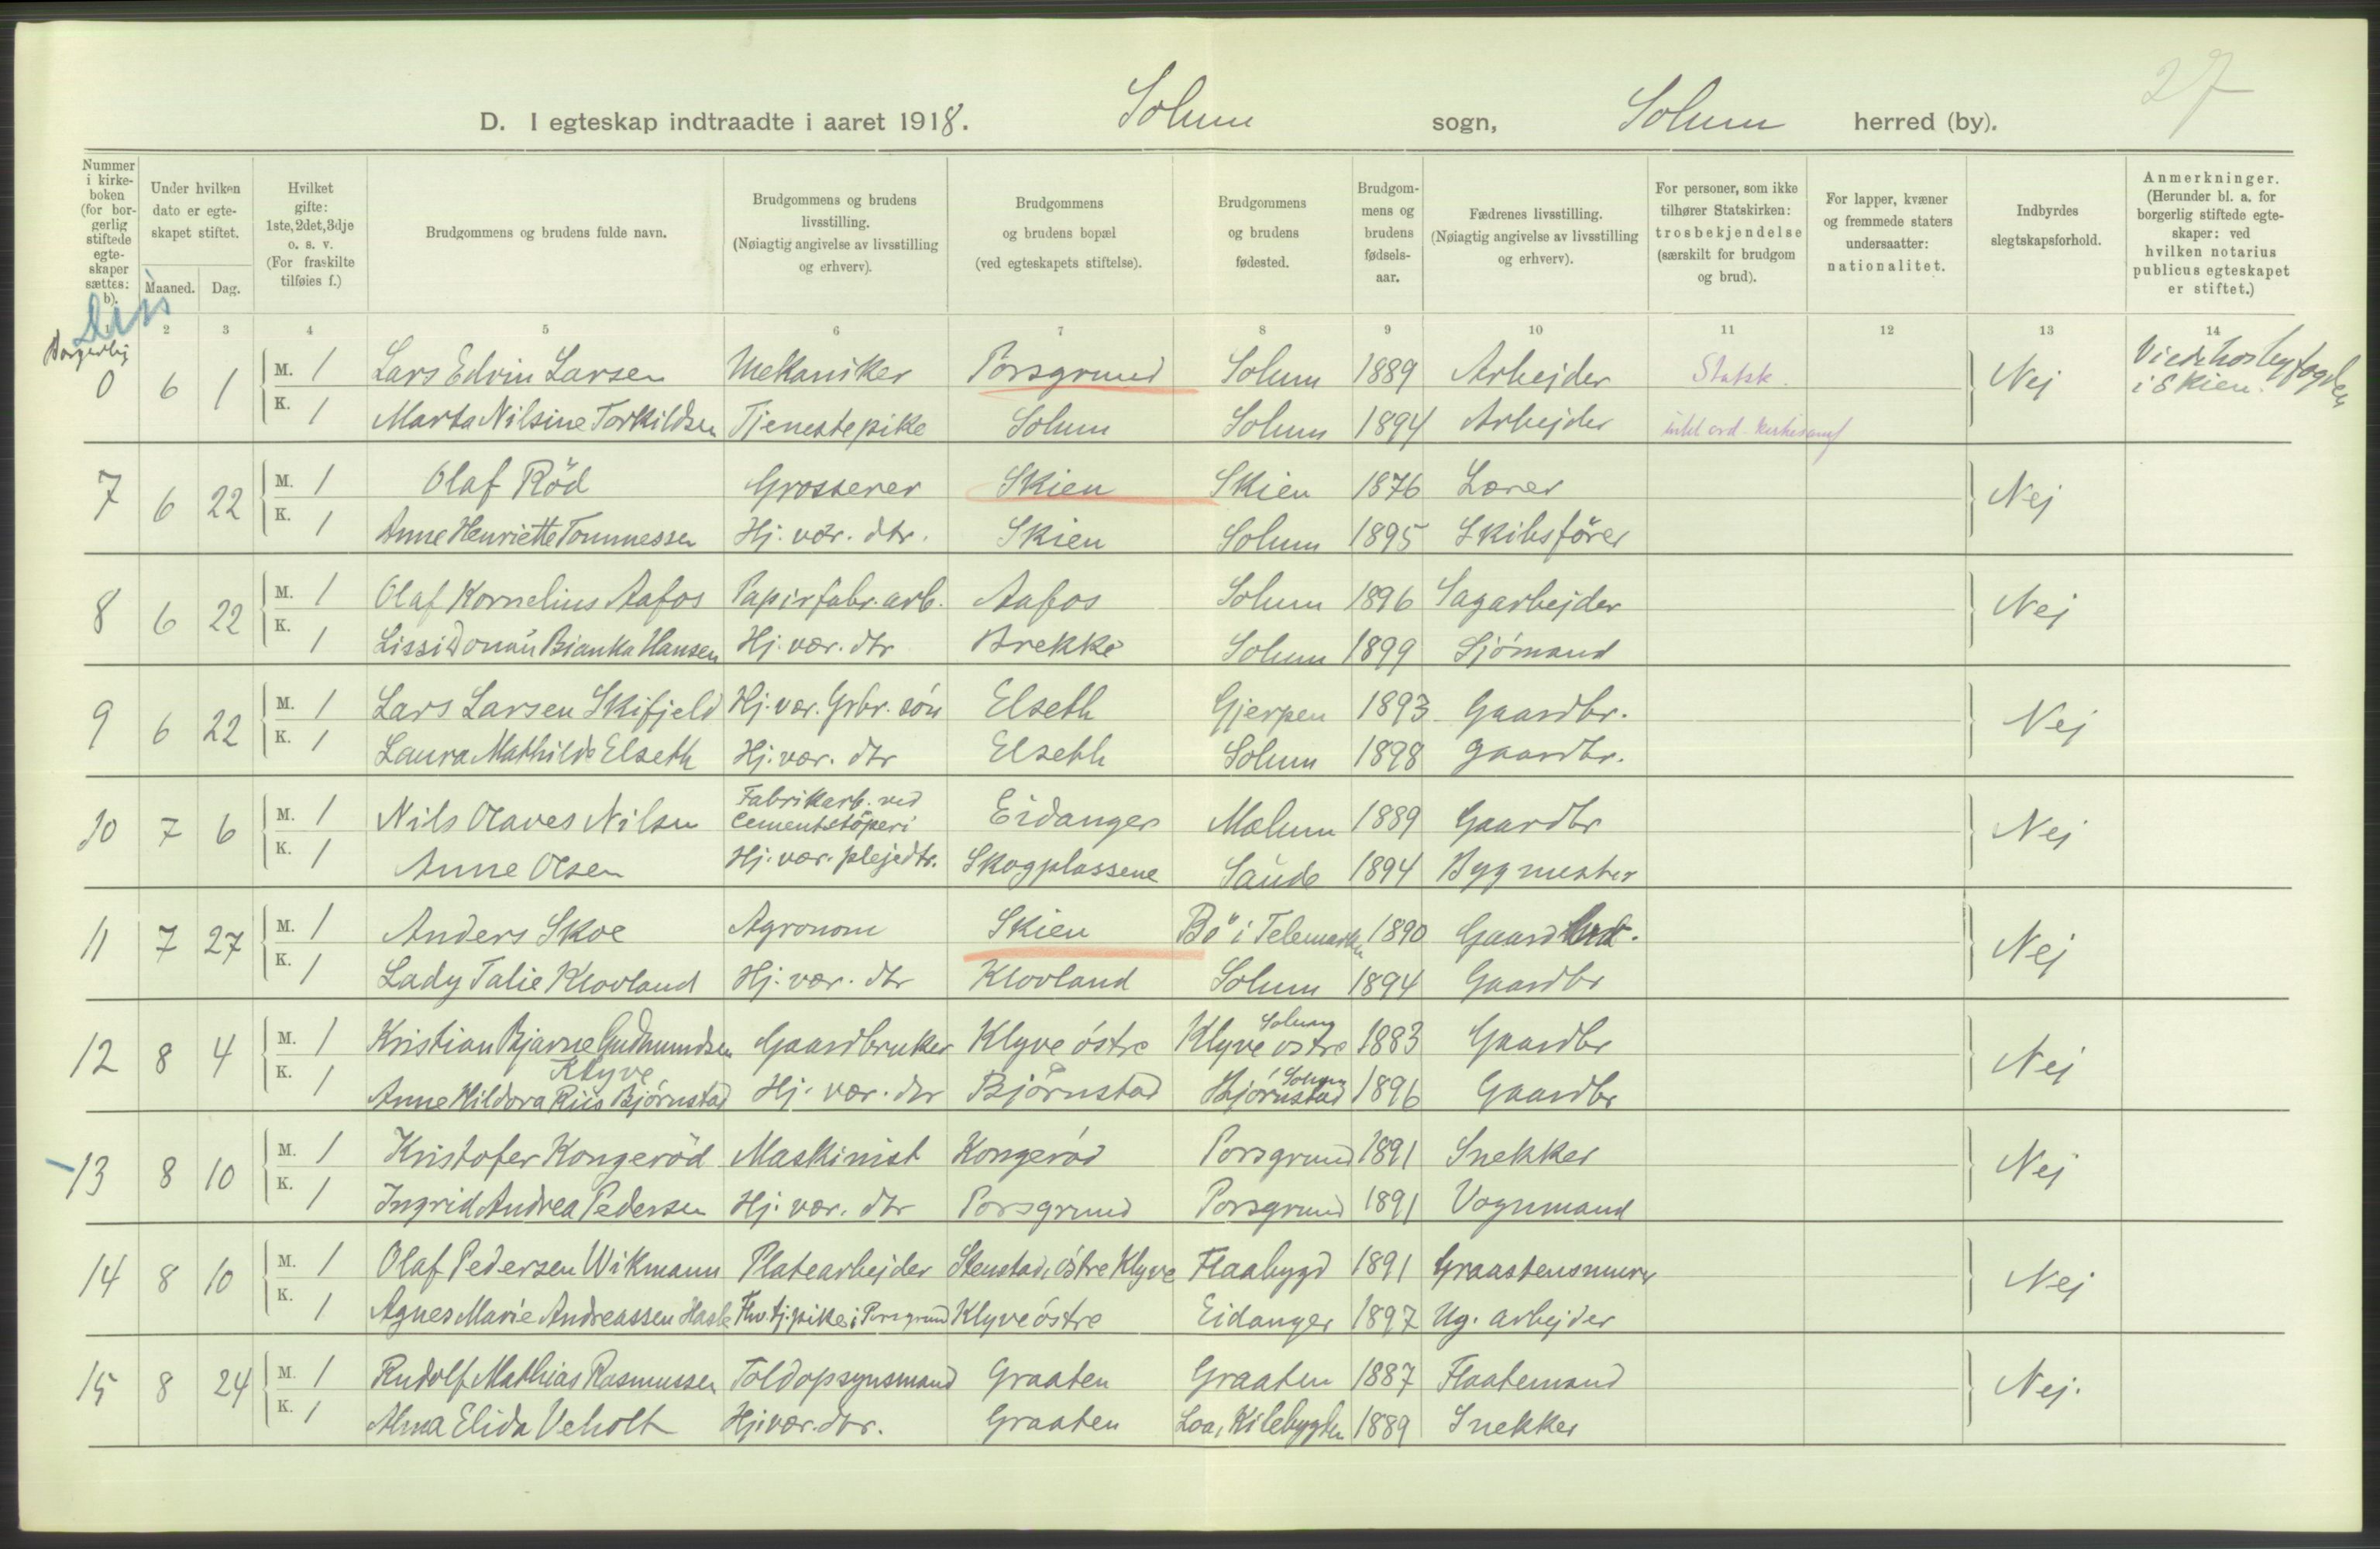 27
D. I egteskap indtraadte i aaret 1918. Solum sogn, Solum herred (by).
Nummer i kirke-boken (for bor-gerlig stiftede egte-skaper sættes: b).
Under hvilken dato er egte-skapet stiftet.
Maaned. Dag.
Hvilket gifte: 1ste, 2det, 3dje o. s. v. (For fraskilte tilføies f.)
Brudgommens og brudens fulde navn.
Brudgommens og brudens livsstilling. (Nøiagtig angivelse av livsstilling og erhverv).
Brudgommens og brudens bopæl (ved egteskapets stiftelse).
Brudgommens og brudens fødested.
Brudgom-mens og brudens fødsels-aar.
Fædrenes livsstilling. (Nøiagtig angivelse av livsstilling og erhverv).
For personer, som ikke tilhører Statskirken: trosbekjendelse (særskilt for brudgom og brud).
For lapper, kvæner og fremmede staters undersaatter: nationalitet.
Indbyrdes slegtskapsforhold.
Anmerkninger. (Herunder bl. a. for borgerlig stiftede egte-skaper: ved hvilken notarius publicus egteskapet er stiftet.)
1 2 3 4 5 6 7 8 9 10 11 12 13 14
Borgerlig
0 6 1 M. 1 Lars Edvin Larsen Mekaniker Porsgrund Solum 1889 Arbejder Statsk. Nej Viede hos byfogden i Skien.
K. 1 Marta Nilsine Torkildsen Tjenestepike Solum Solum 1894 Arbejder
7 6 22 M. 1 Olaf Röd Grosserer Skien Skien 1876 Lærer Nej
K. 1 Anne Henriette Tommessen Hj. vær. dtr. Skien Solum 1895 Skibsförer
8 6 22 M. 1 Olaf Kornelius Aafos Papirfabr. arb. Aafos Solum 1896 Sagarbejder Nej
K. 1 Lissi Donau Bianka Hansen Hj. vær. dtr Brekke Solum 1899 Sjömand
9 6 22 M. 1 Lars Larsen Skifjeld Hj. vær. Grbr. sön Elseth Gjerpen 1893 Gaardbr. Nej
K. 1 Laura Mathilde Elseth Hj. vær. dtr Elseth Solum 1898 Gaardbr.
10 7 6 M. 1 Nils Olaves Nilsen Fabrikarb. ved Cementstöperi Eidanger Mælum 1889 Gaardbr Nej
K. 1 Anne Olsen Hj. vær. plejedtr. Skogplassene Saude 1894 Bygmester
11 7 27 M. 1 Anders Skoe Agronom Skien Bö i Telemarken 1890 Gaardbr. Nej
K. 1 Lady Talie Klovland Hj. vær. dtr Klovland Solum 1894 Gaardbr
12 8 4 M. 1 Kristian Bjarne Gudmundsen Klyve Gaardbruker Klyve östre Klyve östre Solum 1883 Gaardbr Nej
K. 1 Anne Hildora Riis Björnstad Hj. vær. dtr Björnstad Björnstad i Solum 1896 Gaardbr
13 8 10 M. 1 Kristofer Kongeröd Maskinist Kongeröd Porsgrund 1891 Snekker Nej
K. 1 Ingrid Andrea Pedersen Hj. vær. dtr Porsgrund Porsgrund 1891 Vognmand
14 8 10 M. 1 Olaf Pedersen Wikmann Platearbejder Stenstad, östre Klyve Flaabygd 1891 Graastensmurer Nej
K. 1 Agnes Marie Andreassen Hasle Fhv. tj. pike i Porsgrund Klyve östre Eidanger 1897 Ug. arbejder
15 8 24 M. 1 Rudolf Mathias Rasmussen Toldopsynsmand Graaten Graaten 1887 Flaatemand Nej.
K. 1 Alma Elida Veholt Hj. vær. dtr. Graaten Loa, Kilebygden 1889 Snekker